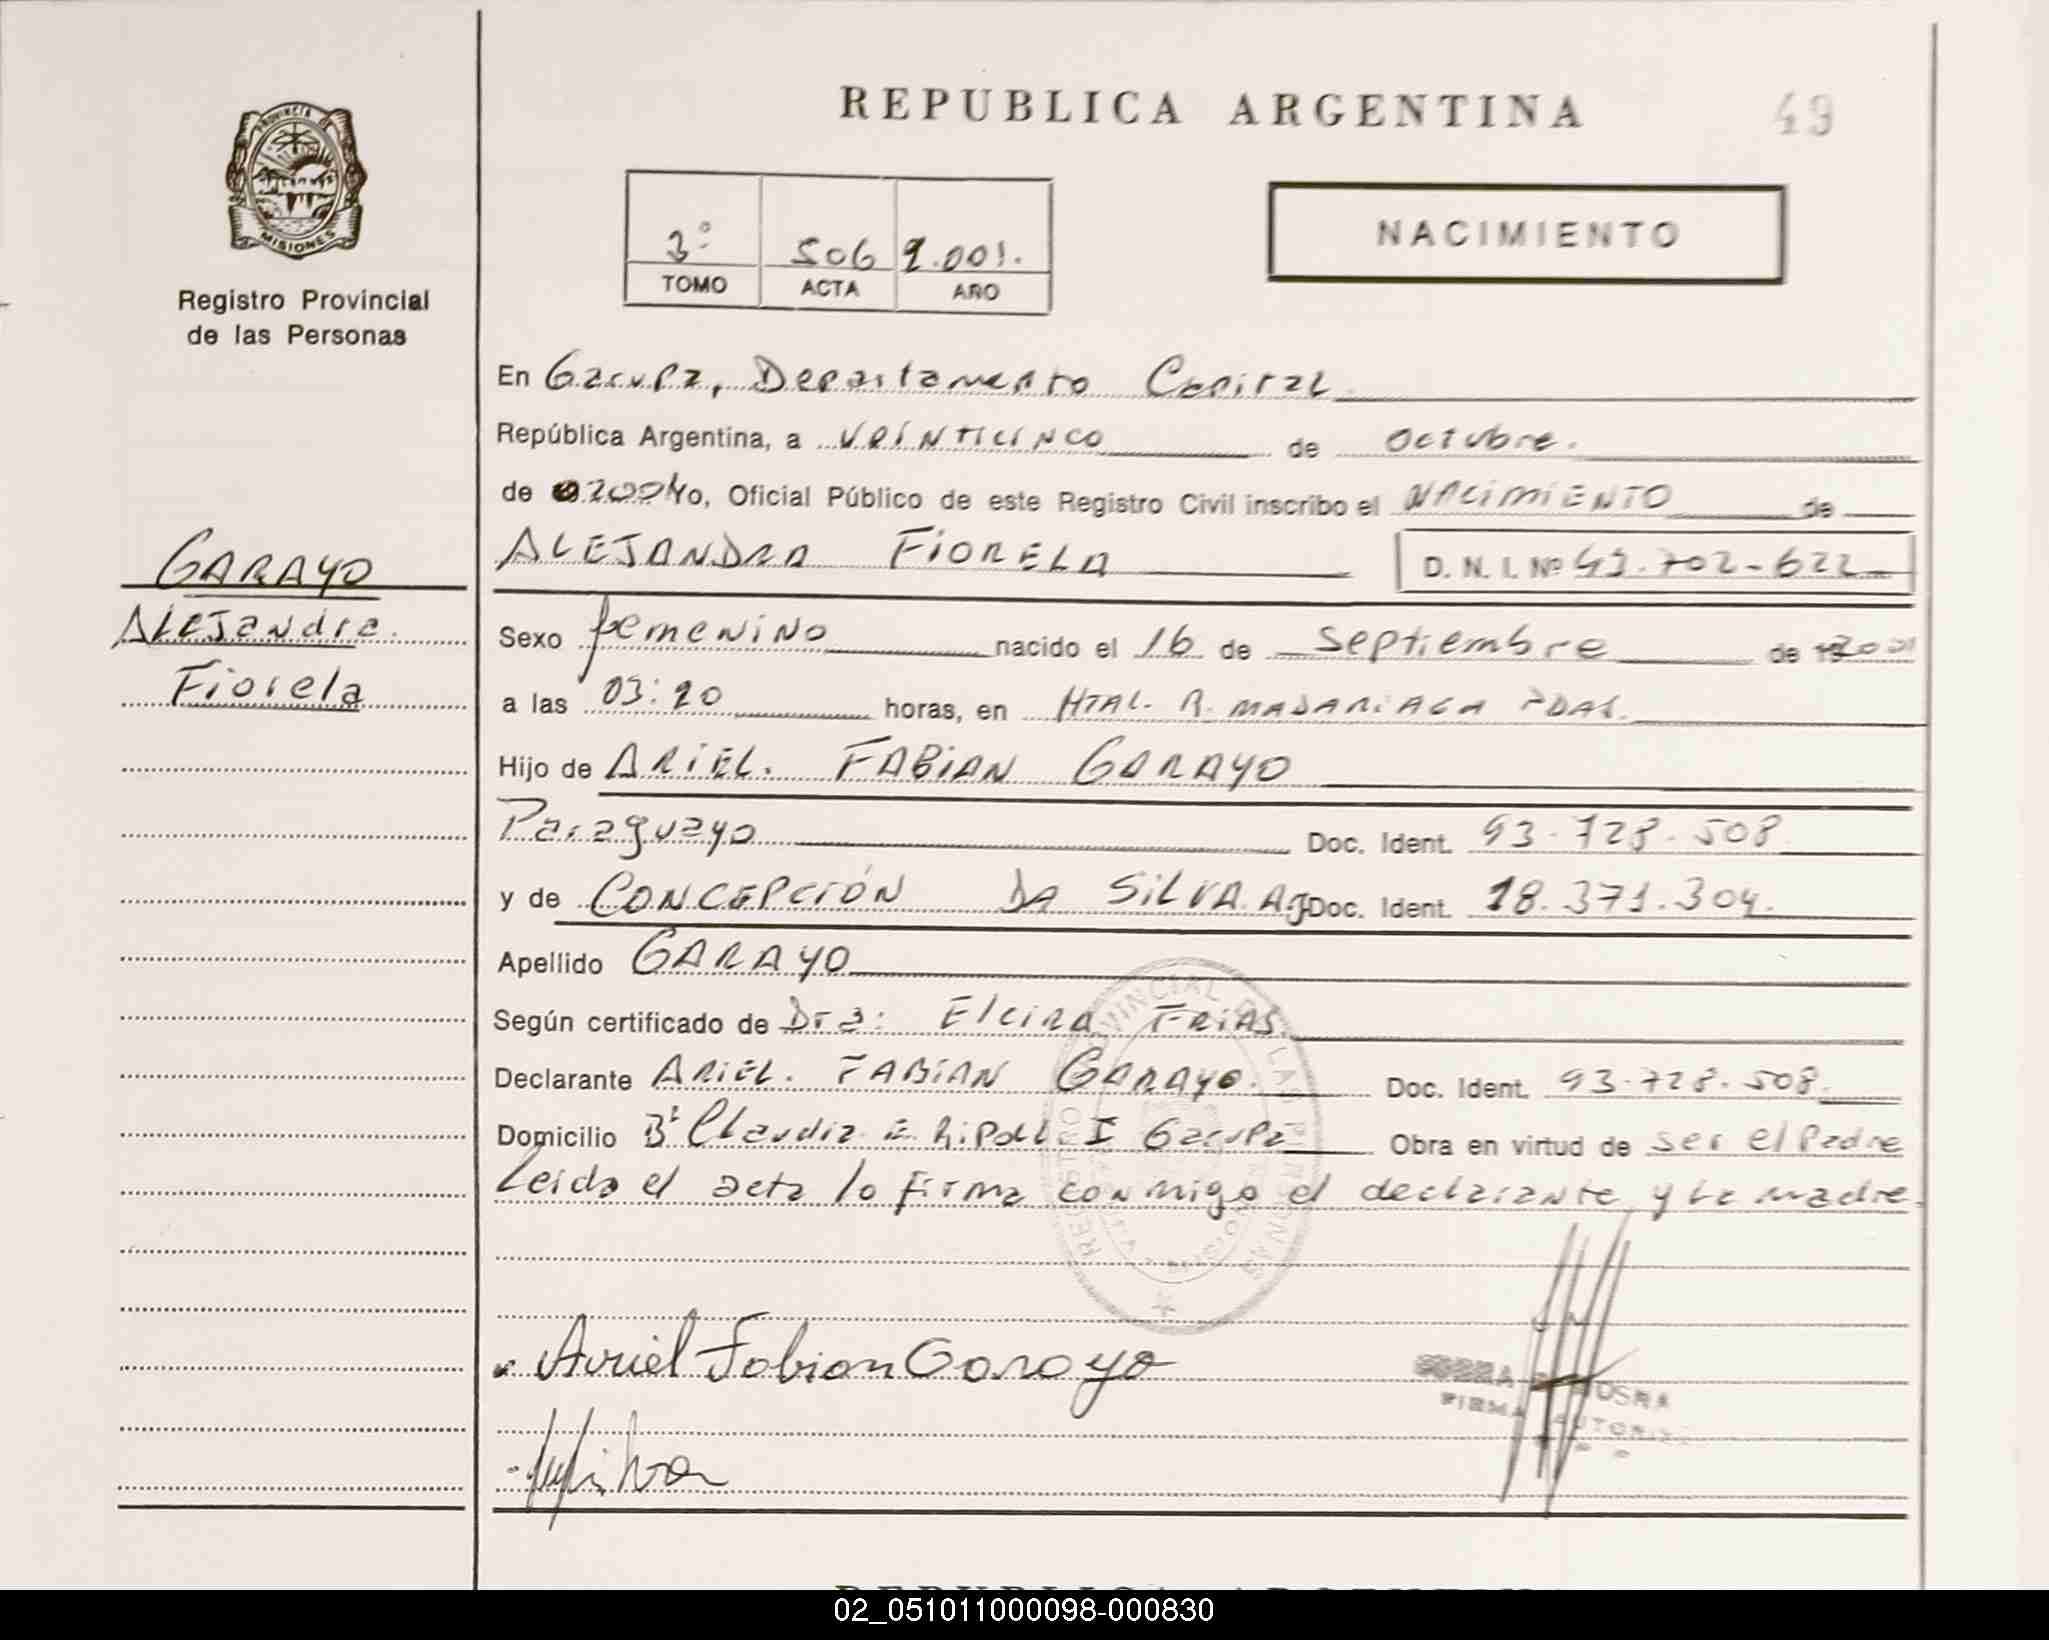 REPUBLICA ARGENTINA
49
PROVINCIA DE
MISIONES
Registro Provincial
de las Personas
3º 506 2.001.
TOMO ACTA AÑO
NACIMIENTO
En Garupa, Departamento Capital
República Argentina, a veinticinco de octubre.
de 2001 Yo, Oficial Público de este Registro Civil inscribo el NACIMIENTO de
ALEJANDRA FIORELA D. N. I. Nº 43.702-622
GARAYO
ALEJandra
Fiorela
Sexo femenino nacido el 16 de Septiembre de 2001
a las 03:20 horas, en HTAL. R. MADARIAGA PDAS.
Hijo de ARIEL. FABIAN GARAYO
Paraguayo Doc. Ident. 93.728.508
y de CONCEPCIÓN DA SILVA. Ag Doc. Ident. 18.371.304.
Apellido GARAYO
Según certificado de Dra: Elcira FRIAS.
Declarante ARIEL. FABIAN GARAYO. Doc. Ident. 93.728.508.
Domicilio Bº Claudia E. Ripoll I Garupa Obra en virtud de ser el Padre
Leida el acta lo firma conmigo el declarante y la madre.
Ariel Fabian Garayo
FIRMA AUTORIZ
02_051011000098-000830